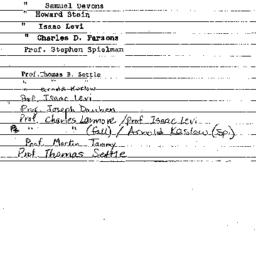 " Samuel Devons
" Howard Stein
" Isaac Levi
" Charles D. Parsons
Prof. Stephen Spielman
Prof. Thomas B. Settle
" " "
Prof. Isaac Levi
Prof. Joseph Dauben
Prof. Charles Larmore / Prof Isaac Levi
" " (fall) / Arnold Koslow (Sp.)
Prof. Martin Tamny
Prof Thomas Settle